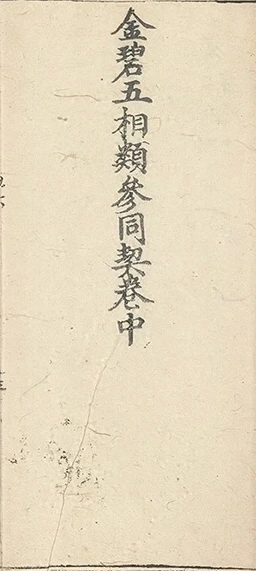 金碧五相類參同契卷中